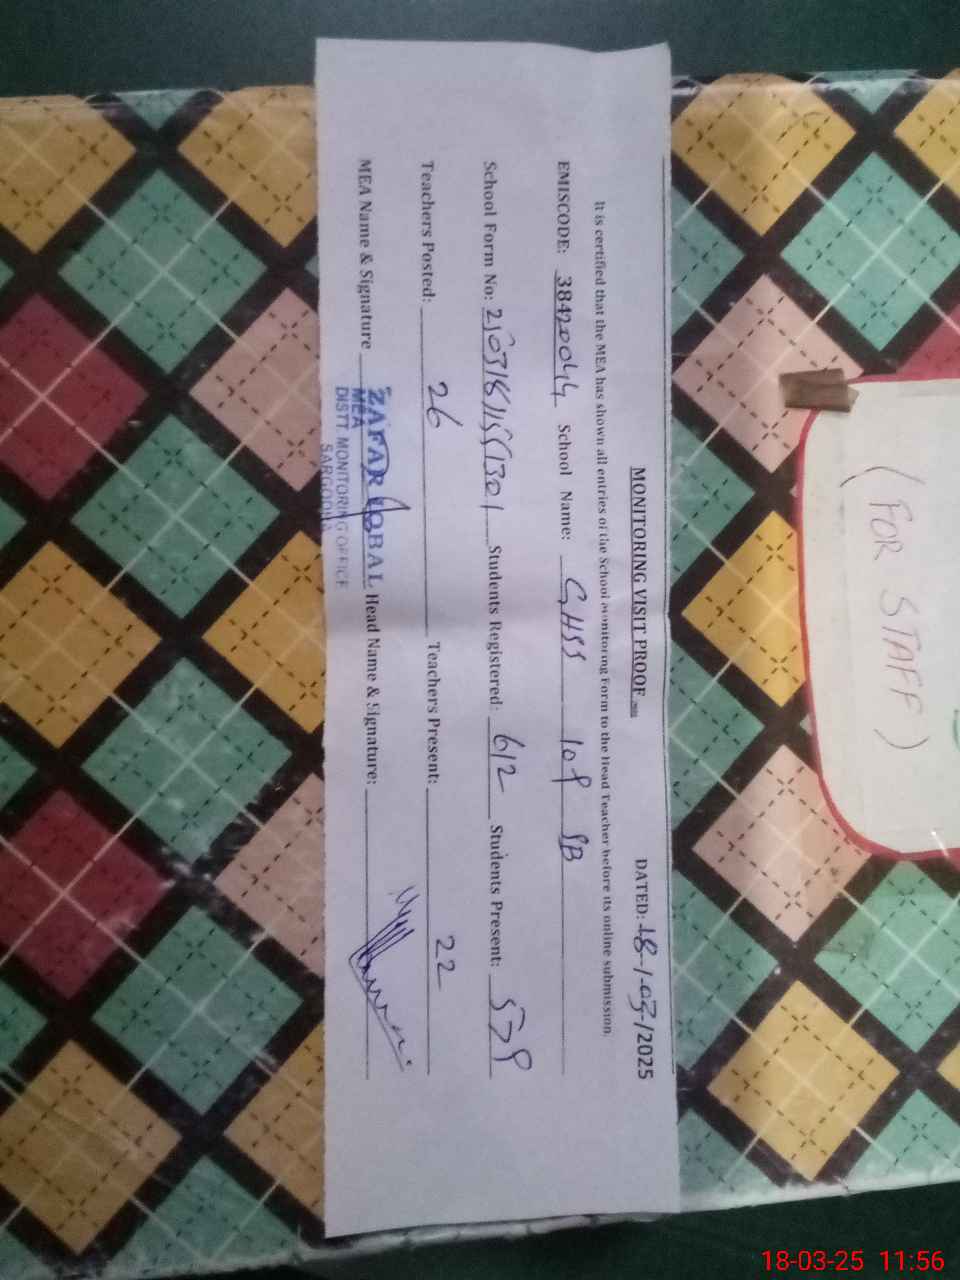 MONITORING VISIT PROOF DATED: 18-/-03-/2025
It is certified that the MEA has shown all entries of the School monitoring Form to the Head Teacher before its online submission.
EMISCODE: 38420044 School Name: GHSS 109 SB
School Form No: Students Registered: 612 Students Present: 579
Teachers Posted: 26 Teachers Present: 22
MEA Name & Signature ZAFAR IQBAL Head Name & Signature:
MEA
DISTT MONITORING OFFICE
SARGODHA
(FOR STAFF)
18-03-25 11:56